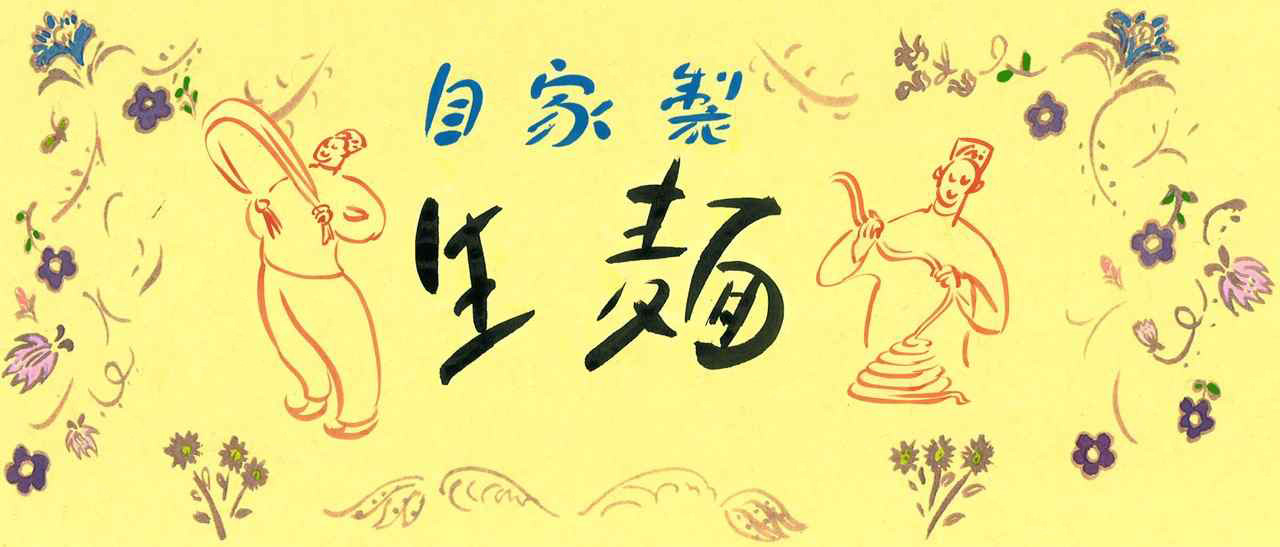 自家製
生麺